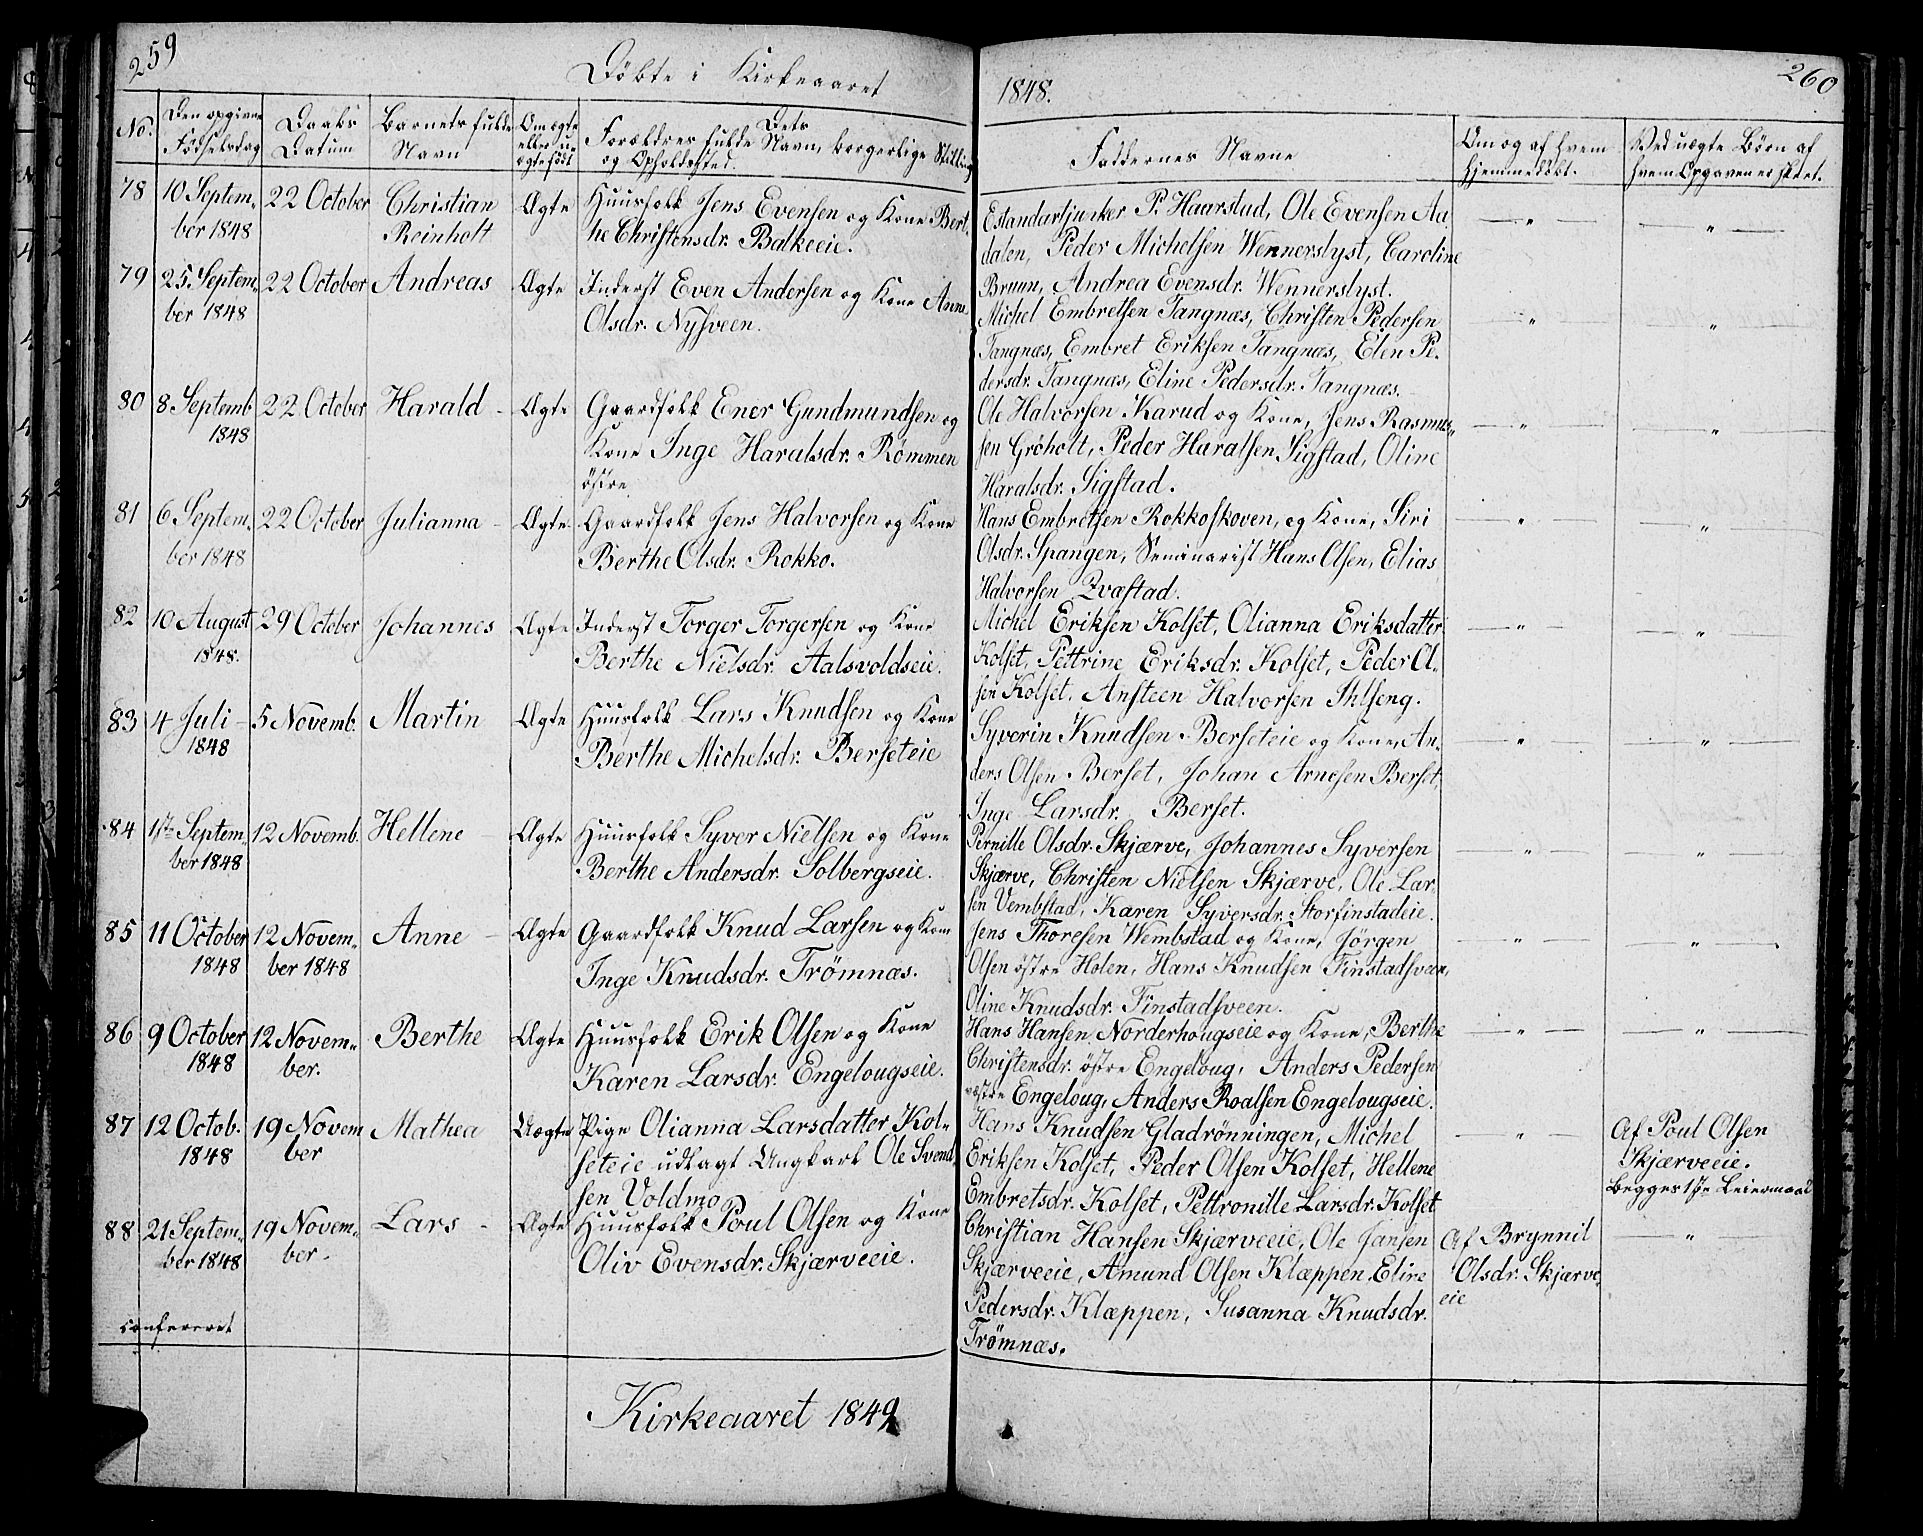 259
Döbte i Kirkeaaret
No. Den opgivne Födselsdag Daabs Datum Barnets fulde Navn Om ægte eller uægte födt Dets Forældres fulde Navn, borgerlige Stilling og Opholdssted.
78 10 Septem- 22 October Christian Ægte Huusfolk Jens Evensen og Kone Bert-
ber 1848 Reinholt he Christensdr. Balkeeie.
79 25 Septem- 22 October Andreas Ægte Inderst Even Andersen og Kone Anne
ber 1848 Olsdr. Nysveen.
80 8 Septemb 22 October Harald - Ægte Gaardfolk Ener Gundmundsen og
1848 Kone Inge Haralsdr. Rommen
östre
81 6 Septem- 22 October Julianna - Ægte- Gaardfolk Jens Halvorsen og Kone
ber 1848 Berthe Olsdr. Rokko.
82 10 August 29 October Johannes Ægte Inderst Torger Torgersen og Kone
1848. Berthe Nielsdr. Aalsvoldseie.
83 4 Juli - 5 Novemb. Martin Ægte Huusfolk Lars Knudsen og Kone
1848 Berthe Michelsdr. Berseteie
84 1ste Septem- 12 Novemb. Hellene - Ægte Huusfolk Syver Nielsen og Kone
ber 1848 Berthe Andersdr. Solbergseie.
85 11 October 12 Novem- Anne - Ægte Gaardfolk Knud Larsen og Kone
1848 ber 1848 Inge Knudsdr. Trömnæs.
86 9 October 12 Novem- Berthe Ægte Huusfolk Erik Olsen og Kone
1848 ber. Karen Larsdr. Engelougseie.
87 12 Octob. 19 Novem Mathea Uægte Pige Olianna Larsdatter Kol-
1848 ber seteie udlagt Ungkarl Ole Svend-
sen Voldmo
88 21 Septem- 19 Novem- Lars - Ægte Huusfolk Poul Olsen og Kone
ber 1848 ber- Oliv Evensdr. Skjærveeie.
confereret
Kirkeaaret 1849
1848.
260
Faddernes Navne Om og af hvem hjemmedöbt. Ved uægte Börn af hvem Opgaven er skeet.
Estandartjunker P. Haarstad, Ole Evensen Aa- — " — — " —
dalen, Peder Michelsen Wennerslyst, Caroline
Bruun, Andrea Evensdr. Wennerslyst.
Michel Embretsen Tangnæs, Christen Pedersen — " — — " —
Tangnæs, Embret Eriksen Tangnæs, Elen Pe-
dersdr. Tangnæs, Eline Pedersdr. Tangnæs.
Ole Halvorsen Karud og Kone, Jens Rasmus- — " — — " —
sen Gröholt, Peder Haralsen Sigstad, Oline
Haralsdr. Sigstad.
Hans Embretsen Rokkoskoven, og Kone, Siri — " — — " —
Olsdr. Spangen, Seminarist Hans Olsen, Elias
Halvorsen Qvæstad.
Michel Eriksen Kolset, Olianna Eriksdatter — " — — " —
Kolset, Pettrine Eriksdr. Kolset, Peder Ol-
sen Kolset, Ansteen Halvorsen Ihlseng.
Syverin Knudsen Berseteie og Kone, An- — " — — " —
ders Olsen Berset, Johan Arnesen Berset,
Inge Larsdr. Berset.
Pernille Olsdr. Skjærve, Johannes Syversen — " — — " —
Skjærve, Christen Nielsen Skjærve, Ole Lar-
sen Vembstad, Karen Syversdr. Storfinstadeie.
Jens Thoresen Wembstad og Kone, Jörgen — " — — " —
Olsen östre Holen, Hans Knudsen Finstadsveen,
Oline Knudsdr. Finstadsveen.
Hans Hansen Norderhougseie og Kone, Berthe — " — — " —
Christensdr. östre Engeloug, Anders Pedersen
væstre Engeloug, Anders Roalsen Engelougseie.
Hans Knudsen Gladrönningen, Michel — " — Af Poul Olsen
Eriksen Kolset, Peder Olsen Kolset, Hellene Skjærveeie.
Embretsdr. Kolset, Pettronille Larsdr. Kolset Begges 1ste Leiermaal
Christian Hansen Skjærveeie, Ole Jansen Af Brynnil — " —
Skjærveeie, Amund Olsen Klæppen, Eline Olsdr. Skjærve-
Pedersdr. Klæppen, Susanna Knudsdr. eie
Trömnæs.